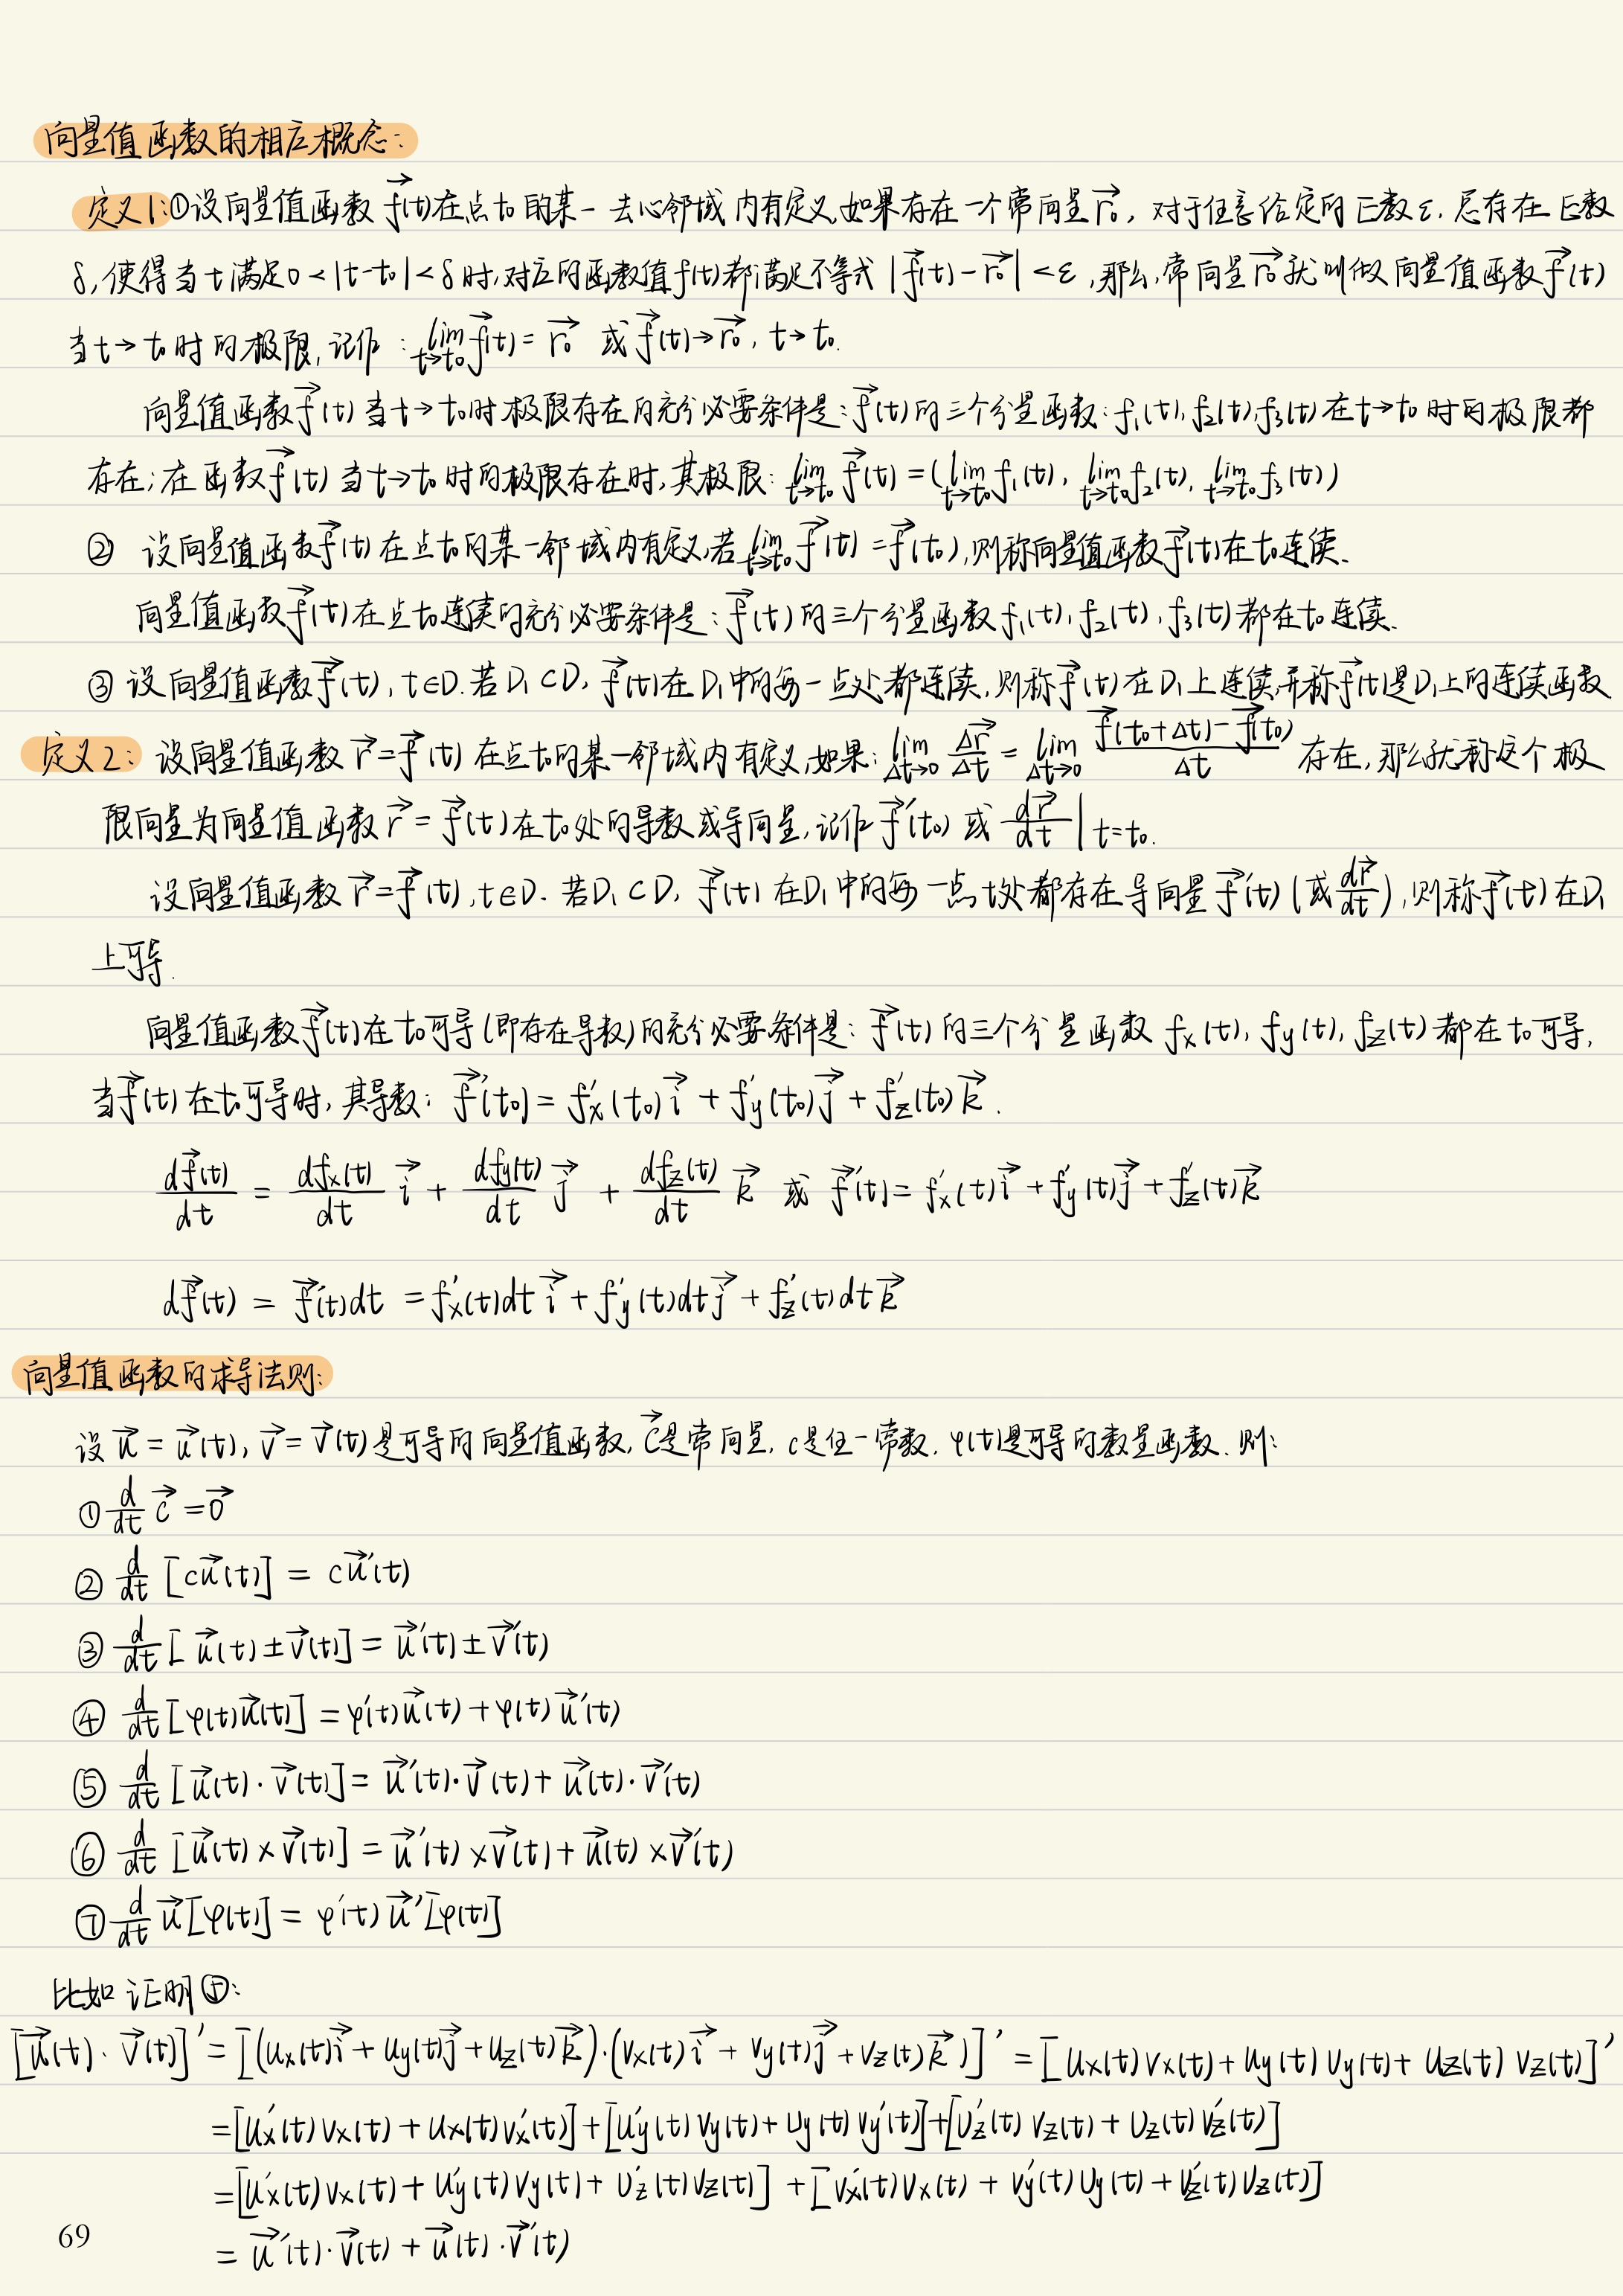 向量值函数的相应概念:
定义1:①设向量值函数 $\vec{f}(t)$在点$t_0$的某一去心邻域内有定义,如果存在一个常向量$\vec{r_0}$,对于任意给定的正数ε,总存在正数
δ,使得当t满足$0<|t-t_0|<δ$时,对应的函数值f(t)都满足不等式 $|\vec{f}(t)-\vec{r_0}|<ε$,那么,常向量$\vec{r_0}$就叫做向量值函数$\vec{f}(t)$
当$t→t_0$时的极限,记作:$\lim_{t→t_0}\vec{f}(t)=\vec{r_0}$ 或$\vec{f}(t)→\vec{r_0}$, $t→t_0$.
向量值函数$\vec{f}(t)$当$t→t_0$时极限存在的充分必要条件是:$\vec{f}(t)$的三个分量函数:$f_1(t),f_2(t),f_3(t)$在$t→t_0$时的极限都
存在;在函数$\vec{f}(t)$当$t→t_0$时的极限存在时,其极限:$\lim_{t→t_0}\vec{f}(t)=(\lim_{t→t_0}f_1(t),\lim_{t→t_0}f_2(t),\lim_{t→t_0}f_3(t))$
② 设向量值函数$\vec{f}(t)$在点$t_0$的某一邻域内有定义,若$\lim_{t→t_0}\vec{f}(t)=\vec{f}(t_0)$,则称向量值函数$\vec{f}(t)$在$t_0$连续.
向量值函数$\vec{f}(t)$在点$t_0$连续的充分必要条件是:$\vec{f}(t)$的三个分量函数$f_1(t),f_2(t),f_3(t)$都在$t_0$连续.
③设向量值函数$\vec{f}(t)$, t∈D.若$D_1⊂D$, $\vec{f}(t)$在$D_1$中的每一点处都连续,则称$\vec{f}(t)$在$D_1$上连续,并称$\vec{f}(t)$是$D_1$上的连续函数
定义2: 设向量值函数$\vec{r}=\vec{f}(t)$在点$t_0$的某一邻域内有定义,如果:$\lim_{Δt→0}\frac{Δ\vec{r}}{Δt}=\lim_{Δt→0}\frac{\vec{f}(t_0+Δt)-\vec{f}(t_0)}{Δt}$存在,那么就称这个极
限向量为向量值函数$\vec{r}=\vec{f}(t)$在$t_0$处的导数或导向量,记作$\vec{f}'(t_0)$或$\frac{d\vec{r}}{dt}|_{t=t_0}$.
设向量值函数$\vec{r}=\vec{f}(t)$,t∈D.若$D_1⊂D$, $\vec{f}(t)$在$D_1$中的每一点t处都存在导向量$\vec{f}'(t)$(或$\frac{d\vec{r}}{dt}$),则称$\vec{f}(t)$在$D_1$
上可导.
向量值函数$\vec{f}(t)$在$t_0$可导(即存在导数)的充分必要条件是:$\vec{f}(t)$的三个分量函数$f_x(t),f_y(t),f_z(t)$都在$t_0$可导,
当$\vec{f}(t)$在$t_0$可导时,其导数:$\vec{f}'(t_0)=f_x'(t_0)\vec{i}+f_y'(t_0)\vec{j}+f_z'(t_0)\vec{k}$.
$\frac{d\vec{f}(t)}{dt}=\frac{df_x(t)}{dt}\vec{i}+\frac{df_y(t)}{dt}\vec{j}+\frac{df_z(t)}{dt}\vec{k}$ 或 $\vec{f}'(t)=f_x'(t)\vec{i}+f_y'(t)\vec{j}+f_z'(t)\vec{k}$
$d\vec{f}(t)=\vec{f}'(t)dt=f_x'(t)dt\vec{i}+f_y'(t)dt\vec{j}+f_z'(t)dt\vec{k}$
向量值函数的求导法则:
设$\vec{u}=\vec{u}(t)$,$\vec{v}=\vec{v}(t)$是可导的向量值函数,$\vec{C}$是常向量,c是任一常数,φ(t)是可导的数量函数,则:
①$\frac{d}{dt}\vec{c}=\vec{0}$
②$\frac{d}{dt}[c\vec{u}(t)]=c\vec{u}'(t)$
③$\frac{d}{dt}[\vec{u}(t)±\vec{v}(t)]=\vec{u}'(t)±\vec{v}'(t)$
④$\frac{d}{dt}[φ(t)\vec{u}(t)]=φ'(t)\vec{u}(t)+φ(t)\vec{u}'(t)$
⑤$\frac{d}{dt}[\vec{u}(t)·\vec{v}(t)]=\vec{u}'(t)·\vec{v}(t)+\vec{u}(t)·\vec{v}'(t)$
⑥$\frac{d}{dt}[\vec{u}(t)×\vec{v}(t)]=\vec{u}'(t)×\vec{v}(t)+\vec{u}(t)×\vec{v}'(t)$
⑦$\frac{d}{dt}\vec{u}[φ(t)]=φ'(t)\vec{u}'[φ(t)]$
比如证明⑤:
$[\vec{u}(t)·\vec{v}(t)]'=[(u_x(t)\vec{i}+u_y(t)\vec{j}+u_z(t)\vec{k})·(v_x(t)\vec{i}+v_y(t)\vec{j}+v_z(t)\vec{k})]'=[u_x(t)v_x(t)+u_y(t)v_y(t)+u_z(t)v_z(t)]'$
$=[u_x'(t)v_x(t)+u_x(t)v_x'(t)]+[u_y'(t)v_y(t)+u_y(t)v_y'(t)]+[u_z'(t)v_z(t)+u_z(t)v_z'(t)]$
$=[u_x'(t)v_x(t)+u_y'(t)v_y(t)+u_z'(t)v_z(t)]+[v_x'(t)u_x(t)+v_y'(t)u_y(t)+v_z'(t)u_z(t)]$
$=\vec{u}'(t)·\vec{v}(t)+\vec{u}(t)·\vec{v}'(t)$
69